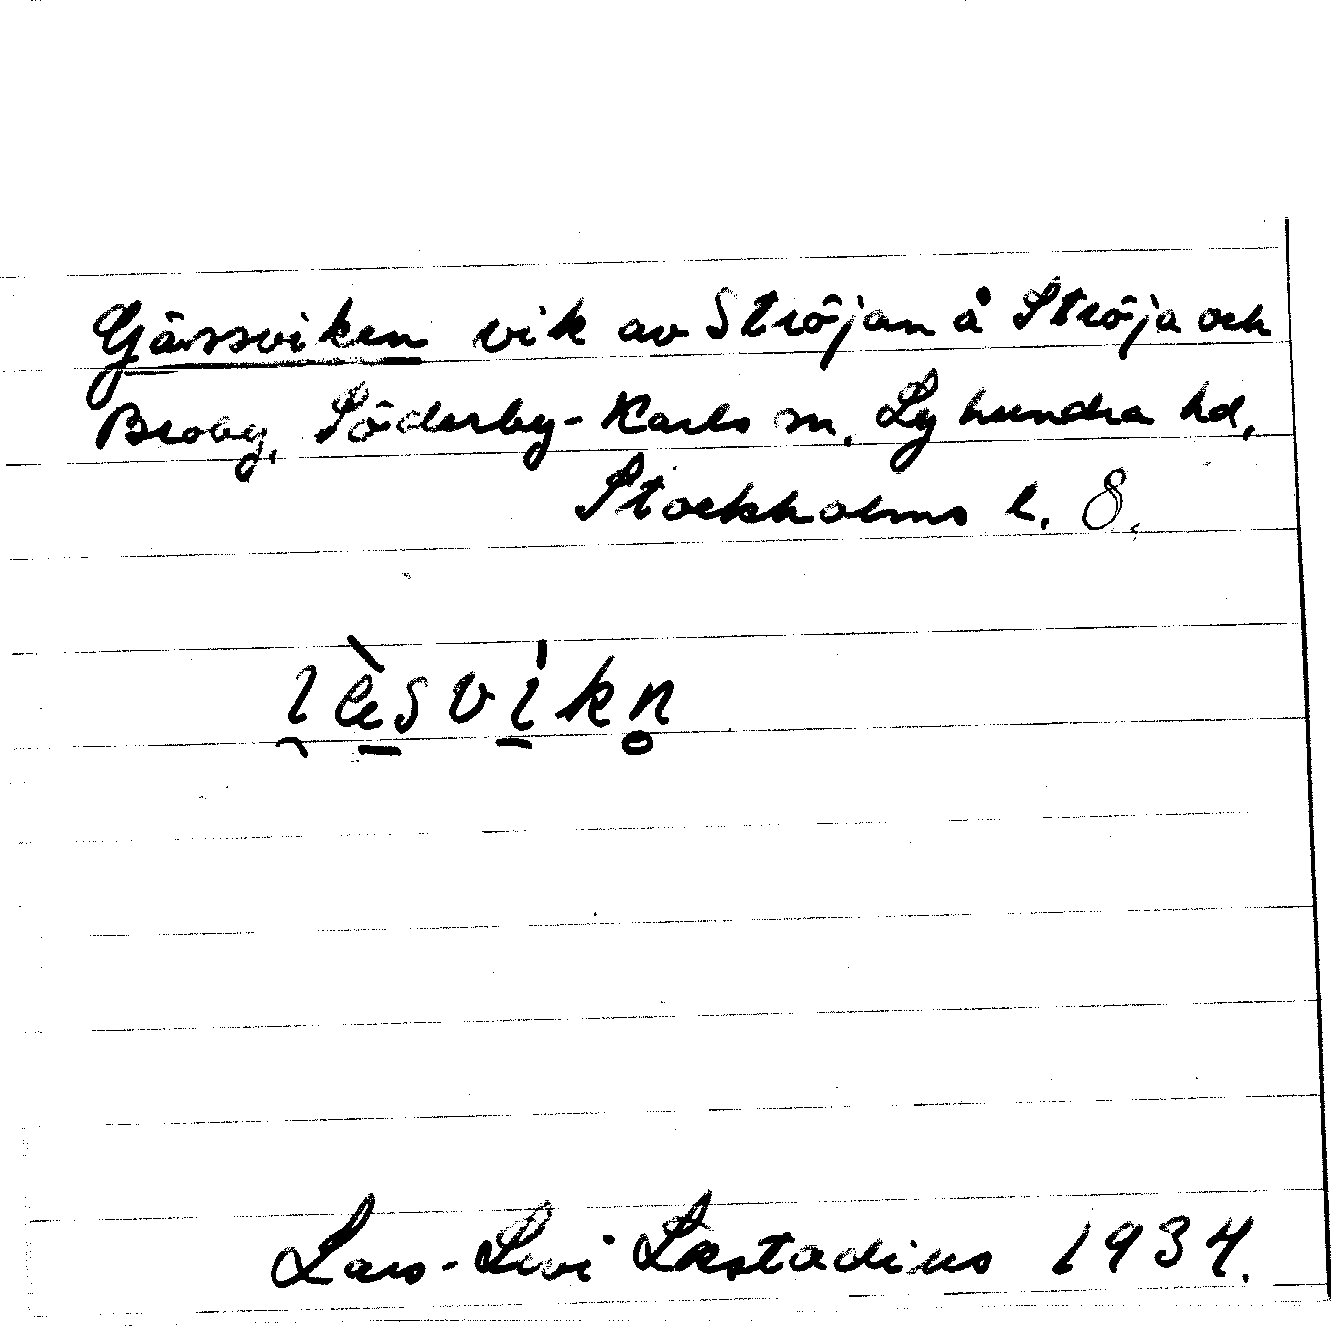 Gässviken vik av Ströjan å Ströja och
Broby, Söderby-Karls sn, Lyhundra hd,
Stockholms l. 8.
i̯èsvíkn̥
Lars-Levi Læstadius 1934.